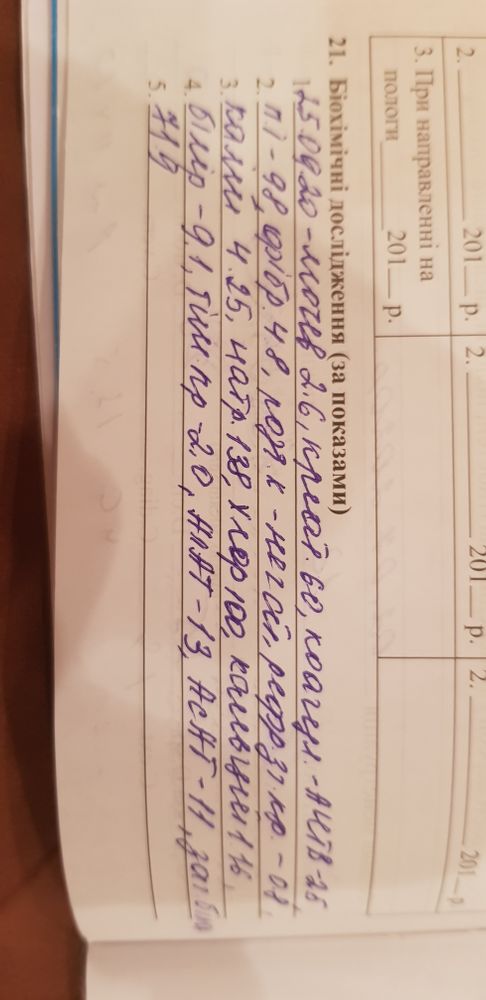 2. ______ 201__ р. 2. ______ 201__ р. 2. ______ 201__ р
3. При направленні на
пологи ______ 201__ р.
21. Біохімічні дослідження (за показами)
1. 25.09.20 - мочев 2.6, креат. 60, коагул. - АЧТВ - 25
2. ПІ - 98, фібр. 4.8, - 0.8,
3. калій 4.25, натр. 138, хлор 100, кальцій 1.16,
4. білір - 9.1, тим. пр - 2.0, АлАТ - 13, АсАТ - 11, заг біло
5. 71.9